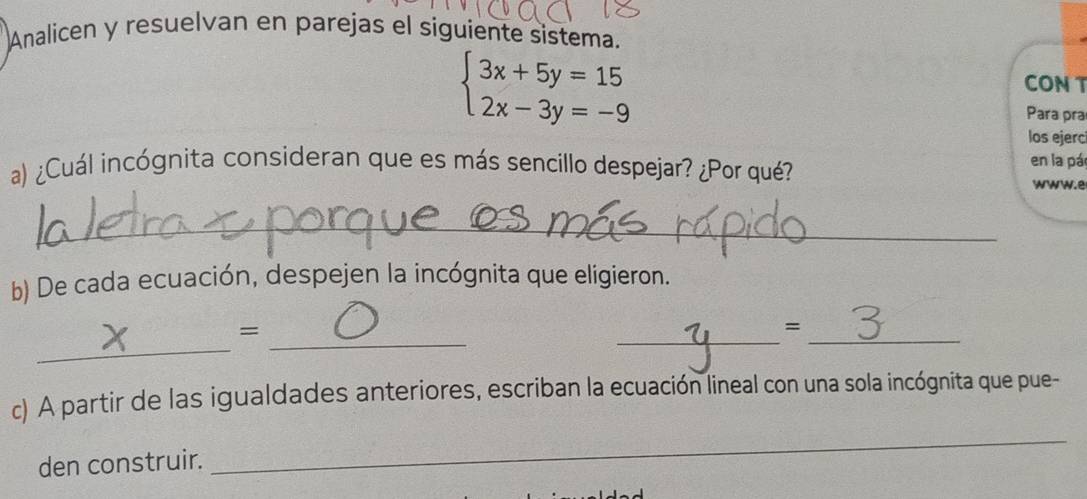 Analicen y resuelvan en parejas el siguiente sistema.
3x + 5y = 15
2x - 3y = -9
CON T
Para pra
los ejerci
en la pá
www.e
a) ¿Cuál incógnita consideran que es más sencillo despejar? ¿Por qué?
la letra x porque es más rápido
b) De cada ecuación, despejen la incógnita que eligieron.
x = 0 y = 3
c) A partir de las igualdades anteriores, escriban la ecuación lineal con una sola incógnita que pue-
den construir.